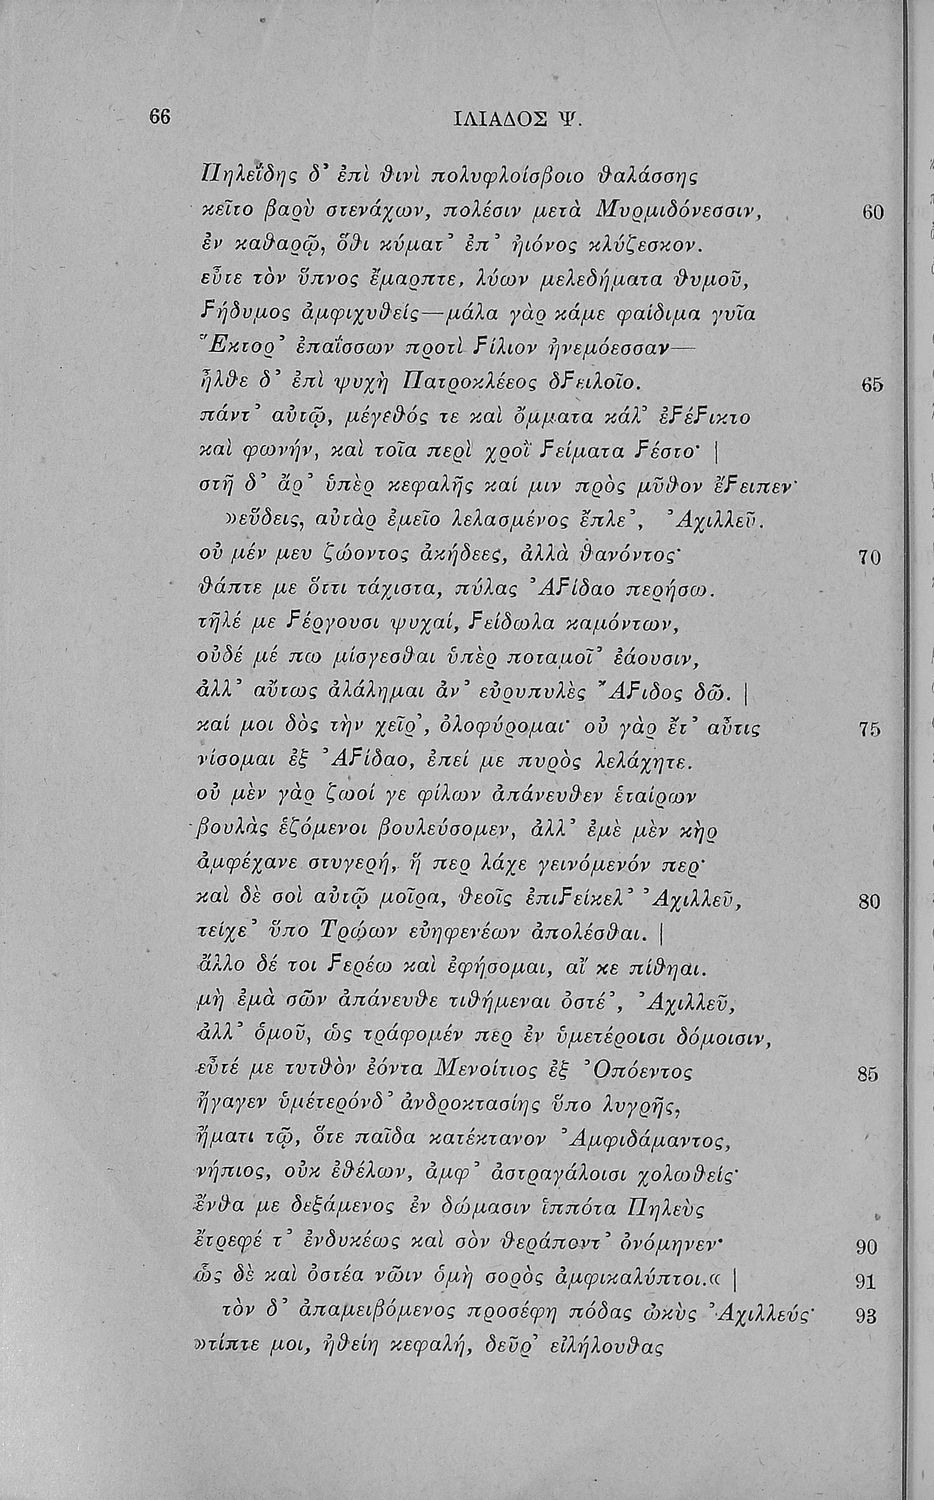 66 ΙΛΙΑΔΟΣ Ψ.
Πηλεΐδης δ’ ἐπὶ θινὶ πολυφλοίσβοιο θαλάσσης
κεῖτο βαρὺ στενάχων, πολέσιν μετὰ Μυρμιδόνεσσιν, 60
ἐν καθαρῷ, ὅθι κύματ’ ἐπ’ ἠιόνος κλύζεσκον.
εὖτε τὸν ὕπνος ἔμαρπτε, λύων μελεδήματα θυμοῦ,
Ϝήδυμος ἀμφιχυθείς—μάλα γὰρ κάμε φαίδιμα γυῖα
Ἕκτορ’ ἐπαΐσσων προτὶ Ϝίλιον ἠνεμόεσσαν—
ἦλθε δ’ ἐπὶ ψυχὴ Πατροκλέεος δϜειλοῖο. 65
πάντ’ αὐτῷ, μέγεθός τε καὶ ὄμματα κάλ’ ἐϜέϜικτο
καὶ φωνήν, καὶ τοῖα περὶ χροῒ Ϝείματα Ϝέστο· |
στῆ δ’ ἄρ’ ὑπὲρ κεφαλῆς καί μιν πρὸς μῦθον ἔϜειπεν·
»εὕδεις, αὐτὰρ ἐμεῖο λελασμένος ἔπλε’, Ἀχιλλεῦ.
οὐ μέν μευ ζώοντος ἀκήδεες, ἀλλὰ θανόντος· 70
θάπτε με ὅττι τάχιστα, πύλας ἈϜίδαο περήσω.
τῆλέ με Ϝέργουσι ψυχαί, Ϝείδωλα καμόντων,
οὐδέ μέ πω μίσγεσθαι ὑπὲρ ποταμοῖ’ ἐάουσιν,
ἀλλ’ αὔτως ἀλάλημαι ἀν’ εὐρυπυλὲς ἌϜιδος δῶ. |
καί μοι δὸς τὴν χεῖρ’, ὀλοφύρομαι· οὐ γὰρ ἔτ’ αὖτις 75
νίσομαι ἐξ ἈϜίδαο, ἐπεί με πυρὸς λελάχητε.
οὐ μὲν γὰρ ζωοί γε φίλων ἀπάνευθεν ἑταίρων
βουλὰς ἑζόμενοι βουλεύσομεν, ἀλλ’ ἐμὲ μὲν κὴρ
ἀμφέχανε στυγερή, ἥ περ λάχε γεινόμενόν περ·
καὶ δὲ σοὶ αὐτῷ μοῖρα, θεοῖς ἐπιϜείκελ’ Ἀχιλλεῦ, 80
τείχε’ ὕπο Τρώων εὐηφενέων ἀπολέσθαι. |
ἄλλο δέ τοι Ϝερέω καὶ ἐφήσομαι, αἴ κε πίθηαι.
μὴ ἐμὰ σῶν ἀπάνευθε τιθήμεναι ὀστέ’, Ἀχιλλεῦ,
ἀλλ’ ὁμοῦ, ὡς τράφομέν περ ἐν ὑμετέροισι δόμοισιν,
εὖτέ με τυτθὸν ἐόντα Μενοίτιος ἐξ Ὀπόεντος 85
ἤγαγεν ὑμέτερόνδ’ ἀνδροκτασίης ὕπο λυγρῆς,
ἤματι τῷ, ὅτε παῖδα κατέκτανον Ἀμφιδάμαντος,
νήπιος, οὐκ ἐθέλων, ἀμφ’ ἀστραγάλοισι χολωθείς·
ἔνθα με δεξάμενος ἐν δώμασιν ἱππότα Πηλεὺς
ἔτρεφέ τ’ ἐνδυκέως καὶ σὸν θεράποντ’ ὀνόμηνεν· 90
ὣς δὲ καὶ ὀστέα νῶιν ὁμὴ σορὸς ἀμφικαλύπτοι.« | 91
τὸν δ’ ἀπαμειβόμενος προσέφη πόδας ὠκὺς Ἀχιλλεύς· 93
»τίπτε μοι, ἠθείη κεφαλή, δεῦρ’ εἰλήλουθας